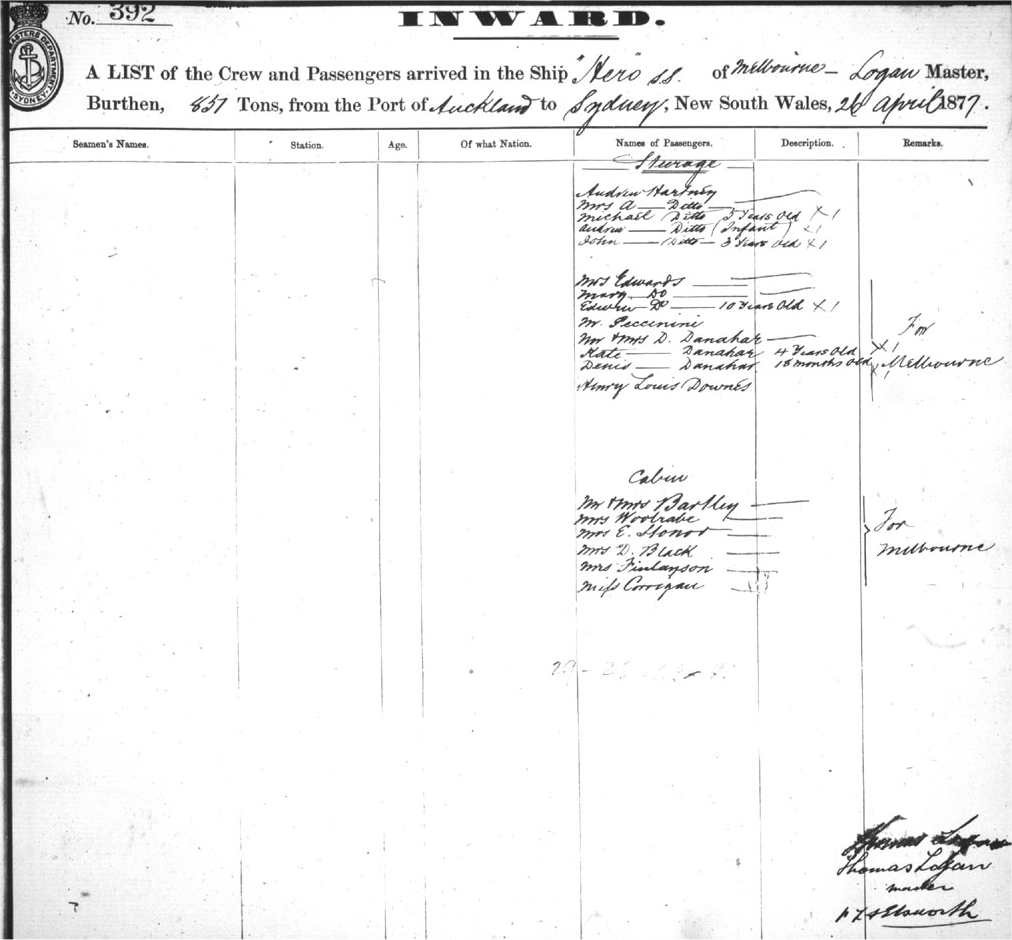 No. 392
INWARD.
A LIST of the Crew and Passengers arrived in the Ship "Hero ss. of Melbourne – Logan Master,
Burthen, 851 Tons, from the Port of Auckland to Sydney, New South Wales, 26 April 1877.
Seamen's Names. Station. Age. Of what Nation. Names of Passengers. Description. Remarks.
Steerage
Andrew Hartney
Mrs A — Ditto
Michael Ditto 5 Years Old X 1
Andrew — Ditto (Infant) X 1
John — Ditto — 3 Years Old X 1
Mrs Edwards
Mary Do
Edwin Do — 10 Years Old X 1
Mr. Peccinini
Mr & Mrs D. Danahar
Kate — Danahar 4 Years Old X 1
Denis — Danahar 18 months Old X 1
Henry Louis Downes
For
Melbourne
Cabin
Mr & Mrs Bartley
Mrs Woolrabe
Mrs E. Honor
Mrs D. Black
Mrs Finlayson
Miss Corrigan
For
Melbourne
Thomas Logan
Thomas Logan
master
Elsworth